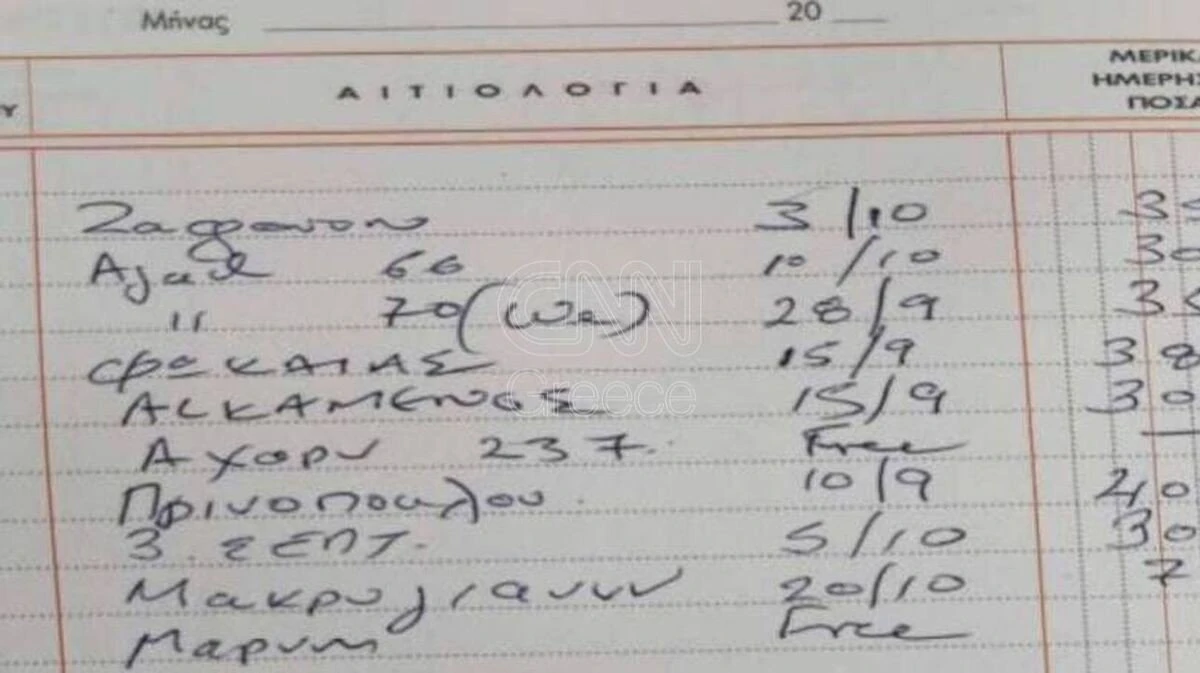 Μήνας 20
Υ ΑΙΤΙΟΛΟΓΙΑ ΜΕΡΙΚ
ΗΜΕΡΗΣ
ΠΟΣΑ
3/10 3
Αγαθ 66 10/10 30
" 70 28/9 3
ΦΩΚΑΙΑΣ 15/9 38
ΑΛΚΑΜΕΝΟΥΣ 15/9 30
Αχαρν 237. Free —
Πρινοπουλου. 10/9 40
3. ΣΕΠΤ. 5/10 30
Μακρυγιαννν 20/10 7
Μαρνη Free
CNN
Greece